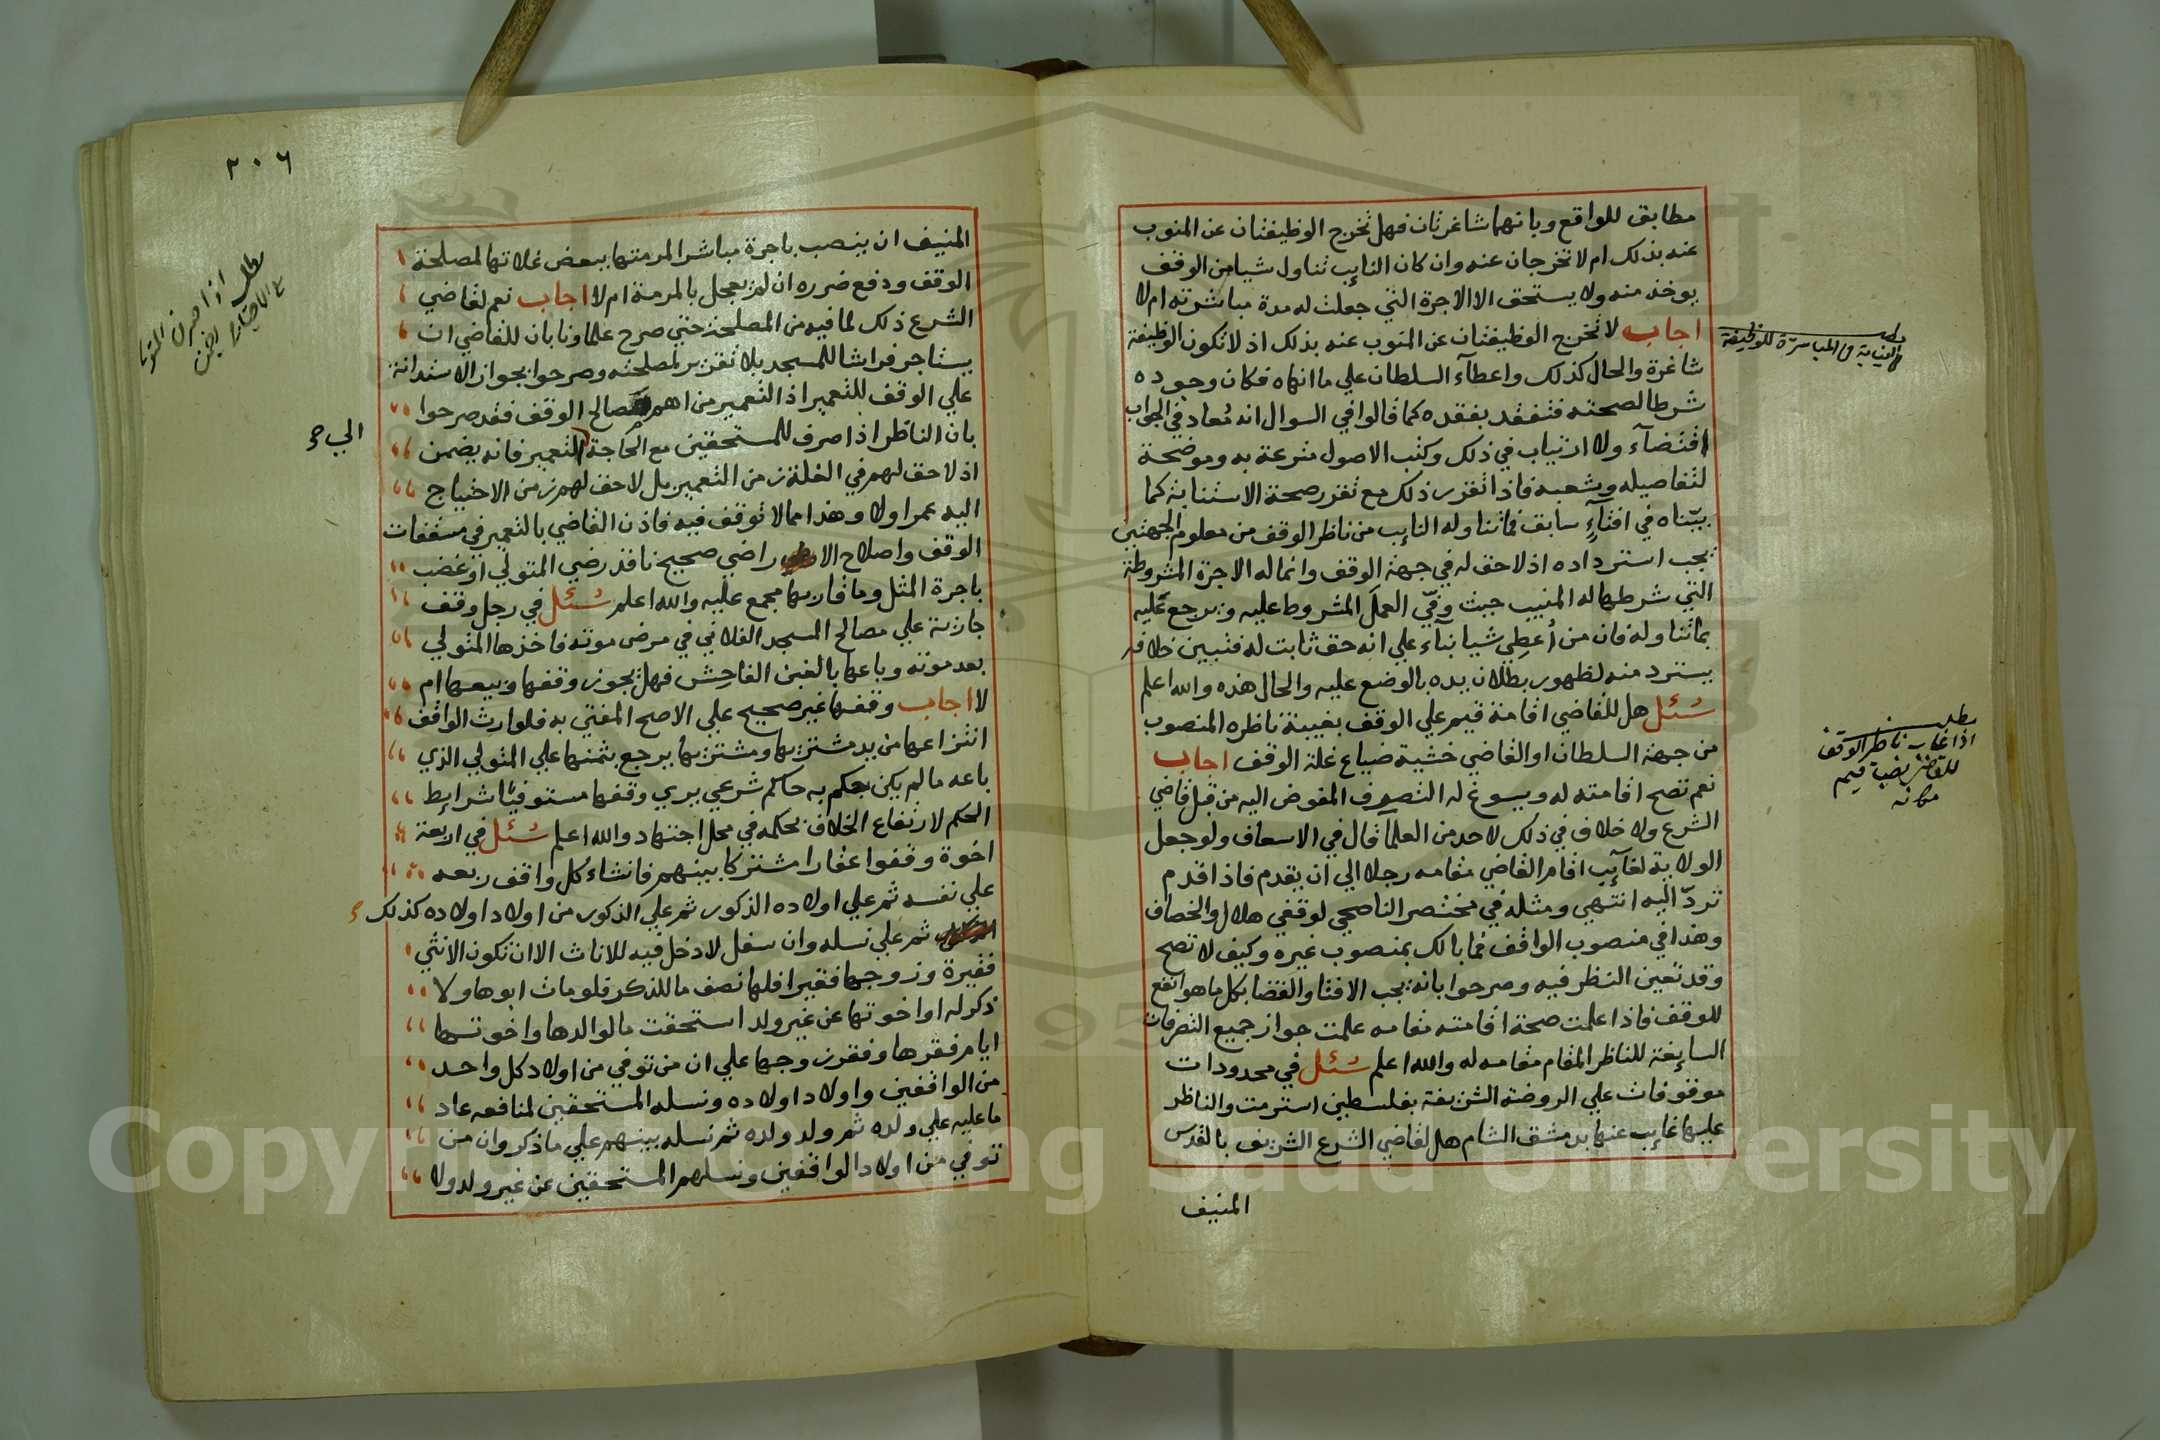 مطابق للواقع وبانهما شاغرتان فهل تخرج الوظيفتان عن المنوب
عنه بذلك ام لا تخرجان عنه وان كان النايب تناول شيا من الوقف
يوخذ منه ولا يستحق الا الاجرة التي جعلت له مدة مباشرته ام لا
اجاب لا تخرج الوظيفتان عن المنوب عنه بذلك اذ لا تكون الوظيفة
شاغرة والحال كذلك واعطآء السلطان علي ما انهاه فكان وجوده
شرطا لصحته فتفقد بفقده كما قالوا في السوال انه مُعاد في الجواب
اقتضآء ولا ارتياب في ذلك وكتب الاصول مترعة به وموضحة
لتفاصيله وشعبه فاذا تقرر ذلك مع تقرر صحة الاستنابة كما
بيّناه في افتآءٍ سابق فما تناوله النايب من ناظر الوقف من معلوم الجهتين
يجب استرداده اذ لا حق له في جهة الوقف وانما له الاجرة المشروطة
التي شرطها له المنيب حيث وفّي العمل المشروط عليه ويرجع عليه
بما تناوله فان من اُعطِي شيا بنآء علي انه حق ثابت له فتبين خلافه
يسترد منه لظهور بطلان يده بالوضع عليه والحال هذه والله اعلم
سُئل هل للقاضي اقامة قيم علي الوقف بغيبة ناظره المنصوب
من جهة السلطان او القاضي خشية ضياع غلة الوقف اجاب
نعم تصح اقامته له ويسوغ له التصرف المفوض اليه من قبل قاضي
الشرع ولا خلاف في ذلك لاحد من العلما قال في الاسعاف ولو جعل
الولاية لغآيب اقام القاضي مقامه رجلا الي ان يقدم فاذا قدم
تردّ اليه انتهي ومثله في مختصر الناصحي لوقفي هلال والخصاف
وهذا في منصوب الواقف فما بالك بمنصوب غيره وكيف لا تصح
وقد تعين النظر فيه وصرحوا بانه يجب الافتا والقضا بكل ما هو انفع
للوقف فاذا علمت صحة اقامته مقامه علمت جواز جميع التصرفات
السايغة للناظر المقام مقامه له والله اعلم سُئل في محدودات
موقوفات علي الروضة الشريفة بفلسطين استرمت والناظر
عليها غايب عنها بدمشق الشام هل لقاضي الشرع الشريف بالقدس
المنيف
مطلب
النيابة في المباشرة للوظيفة
مطلب
اذا غاب ناظر الوقف
للقاضي نصب قيم
مكانه
٢٠٦
المنيف ان ينصب باجرة مباشرا لمرمتها ببعض غلاتها لمصلحة
الوقف ودفع ضرره ان لم يعجل بالمرمة ام لا اجاب نعم لقاضي
الشرع ذلك لما فيه من المصلحة حتي صرح علماونا بان للقاضي ان
يستاجر فراشا للمسجد بلا تقرير لمصلحته وصرحوا بجواز الاستدانة
علي الوقف للتعمير اذ التعمير من اهم مصالح الوقف فقد صرحوا
بان الناظر اذا صرف للمستحقين مع الحاجة التعمير فانه يضمن
الي صح
اذ لا حق لهم في الغلة زمن التعمير بل لا حق لهم زمن الاحتياج
اليه عمر اولا وهذا مما لا توقف فيه فاذن القاضي بالتعمير في مسقفات
الوقف واصلاح الاراضي صحيح نافذ رضي المتولي او غضب
باجرة المثل وما قاربها مجمع عليه والله اعلم سُئل في رجل وقف
جاريته علي مصالح المسجد الفلاني في مرض موته فاخذها المتولي
بعد موته وباعها بالغبن الفاحِش فهل يجوز وقفها وبيعها ام
لا اجاب وقفها غير صحيح علي الاصح المفتي به فلوارث الواقف
انتزاعها من يد مشتريها ومشتريها يرجع بثمنها علي المتولي الذي
باعه ما لم يكن يحكم به حاكم شرعي يري وقفها مستوفيًا شرايط
الحكم لارتفاع الخلاف بحكمه في محل اجتهاد والله اعلم سُئل في اربعة
اخوة وقفوا عقارا مشتركا بينهم فانشاء كل واقف ربعه
علي نفسه ثم علي اولاده الذكور ثم علي الذكور من اولاد اولاده كذلك
ثم علي نسله وان سفل لا دخل فيه للاناث الا ان تكون الانثي
فقيرة وزوجها فقيرا فلها نصف ما للذكر فلو مات ابوها ولا
ذكر له او اخوتها عن غير ولد استحقت ما لوالدها واخوتها
ايام فقرها وفقر زوجها علي ان من توفي من اولاد كل واحد
من الواقفين واولاد اولاده ونسله المستحقين لمنافعه عاد
ما عليه علي ولده ثم ولد ولده ثم نسله بينهم علي ما ذكر وان من
توفي من اولاد الواقفين ونسلهم المستحقين عن غير ولد ولا
مطلب
اذا صرف المتولي
Copyright © King Saud University